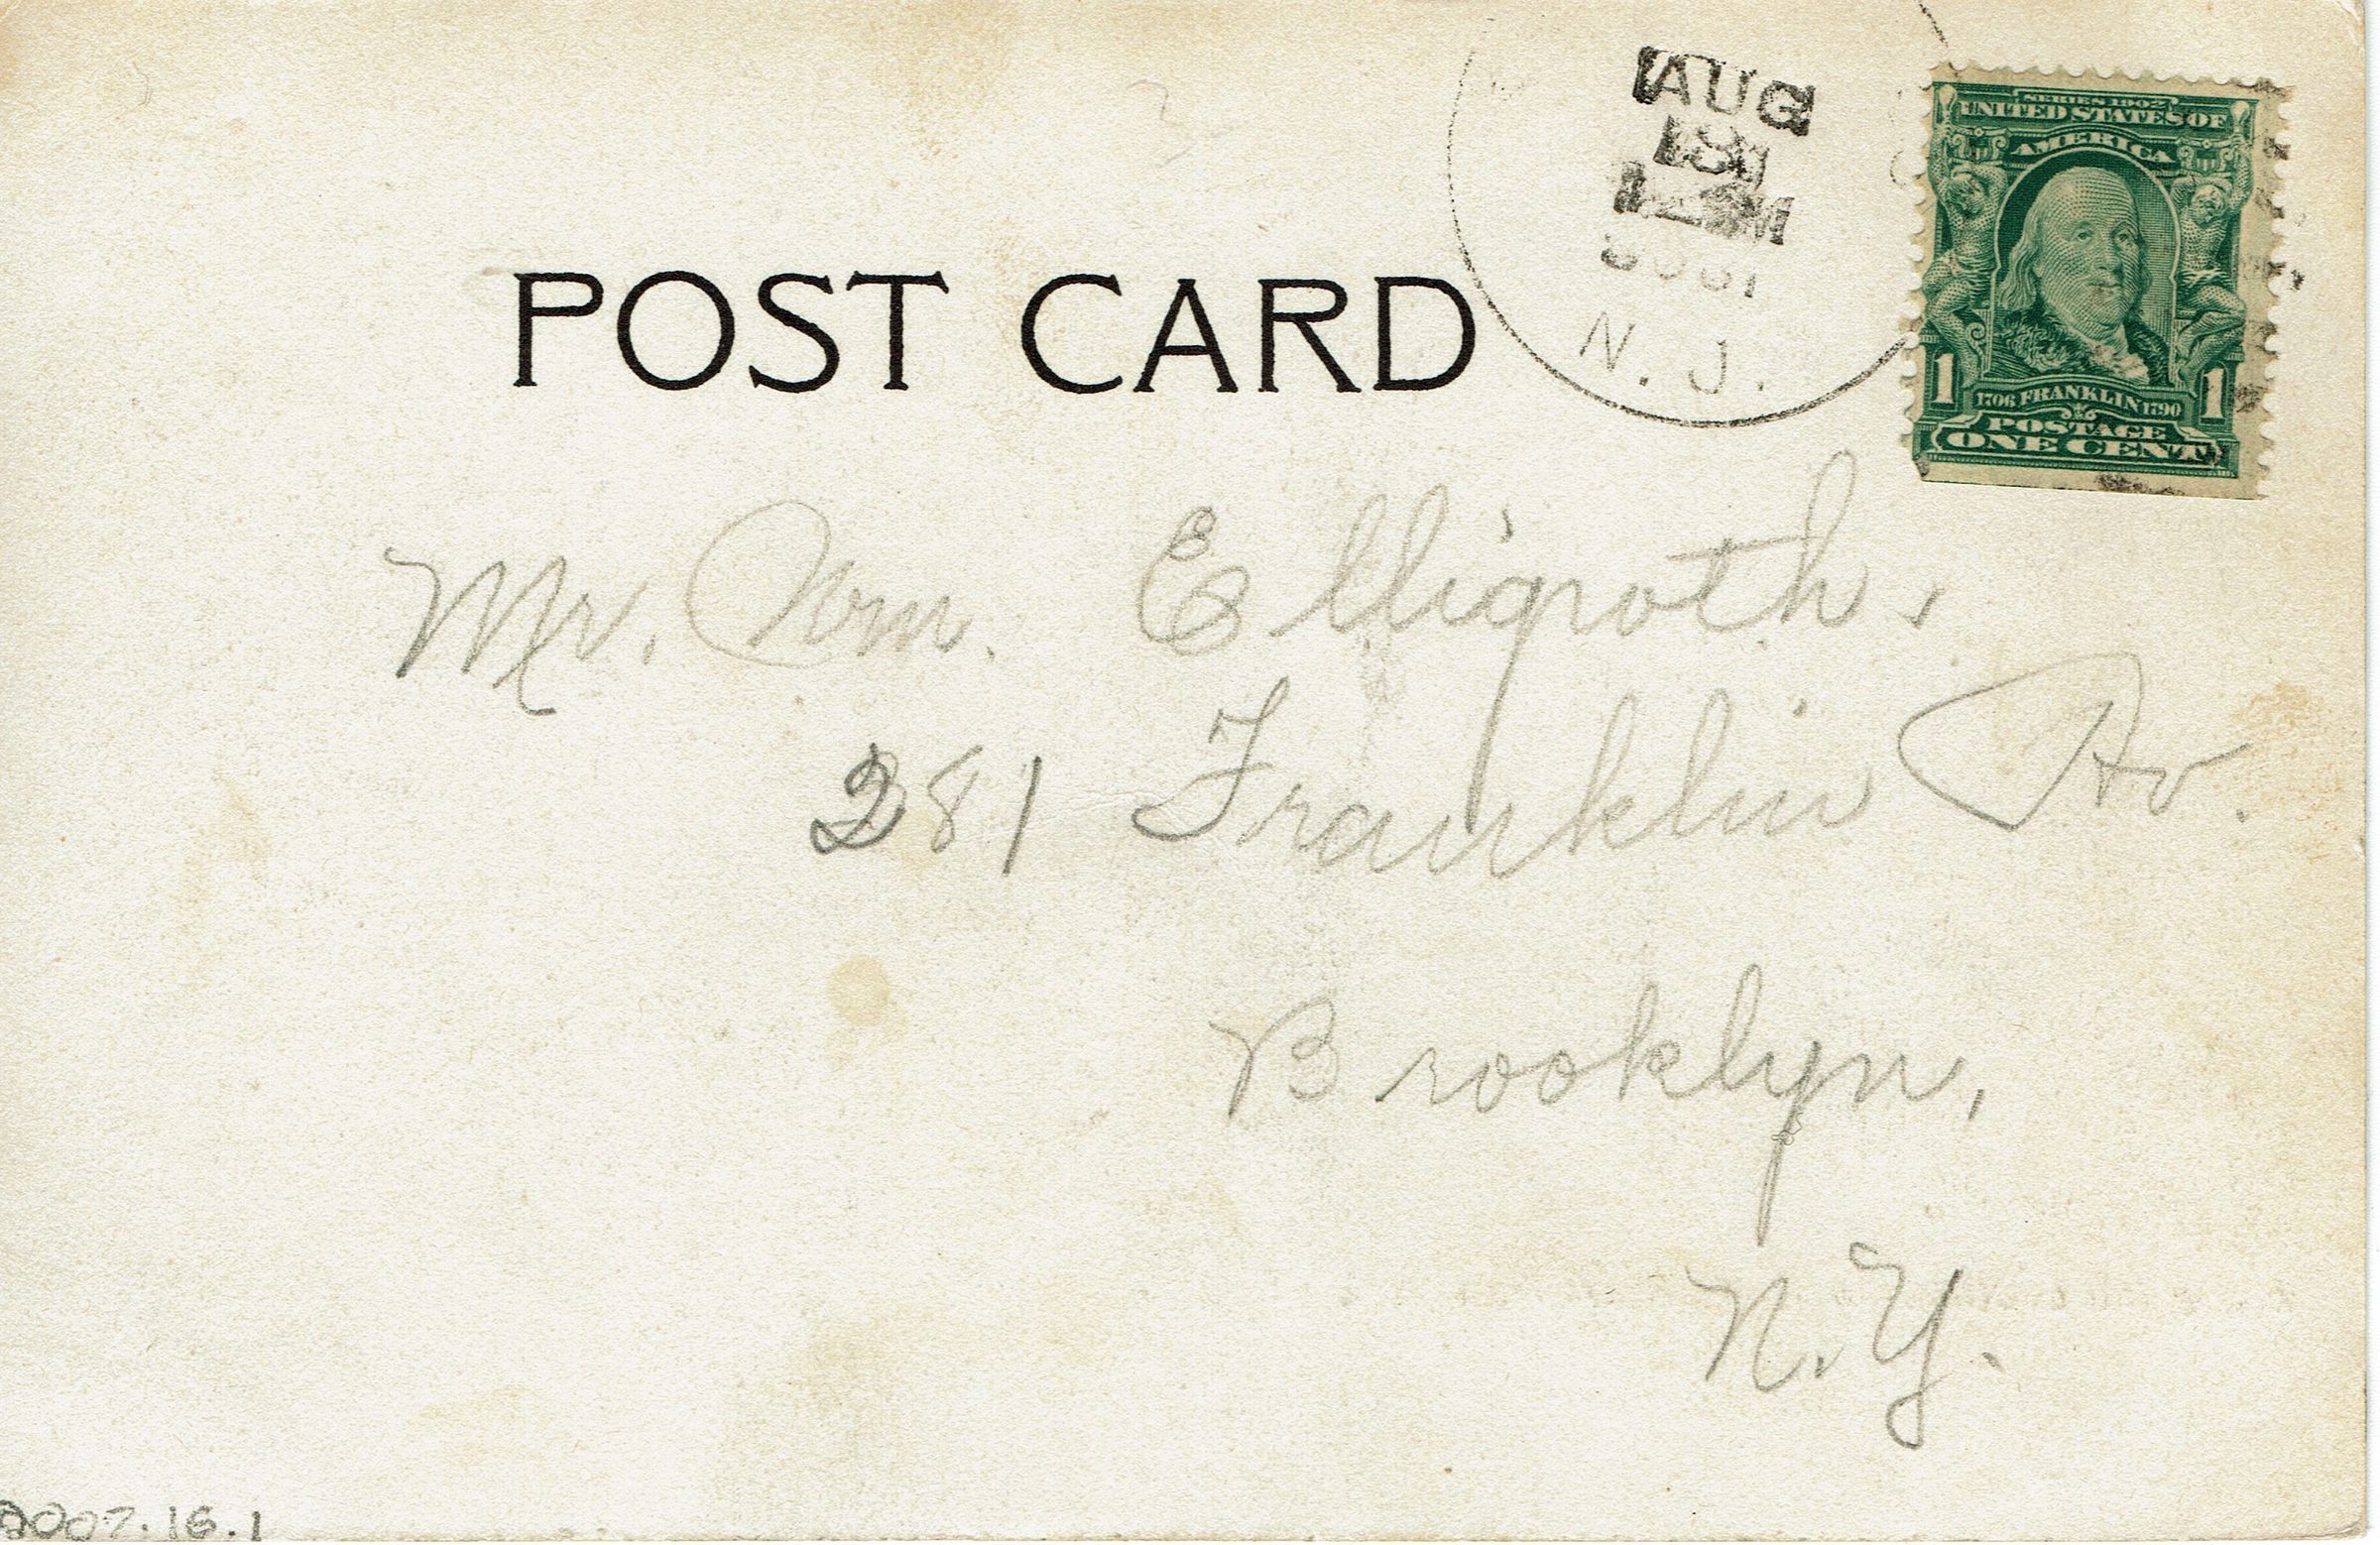 AUG
N. J.
SERIES 1902
UNITED STATES OF
AMERICA
1 1706 FRANKLIN 1790 1
POSTAGE
ONE CENT
POST CARD
Mr. Wm. Elligroth,
281 Franklin Av.
Brooklyn,
N.Y.
2007.16.1